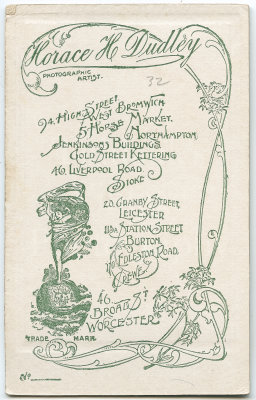 Horace H Dudley
PHOTOGRAPHIC
ARTIST.
32
94. HIGH STREET
WEST BROMWICH
5 HORSE MARKET,
NORTHAMPTON
JENKINSONS BUILDINGS
GOLD STREET KETTERING
46. LIVERPOOL ROAD
STOKE
20. GRANBY STREET,
LEICESTER
118A STATION STREET
BURTON.
EDLESTON ROAD,
CREWE
46.
BROAD ST
WORCESTER
TRADE MARK
No